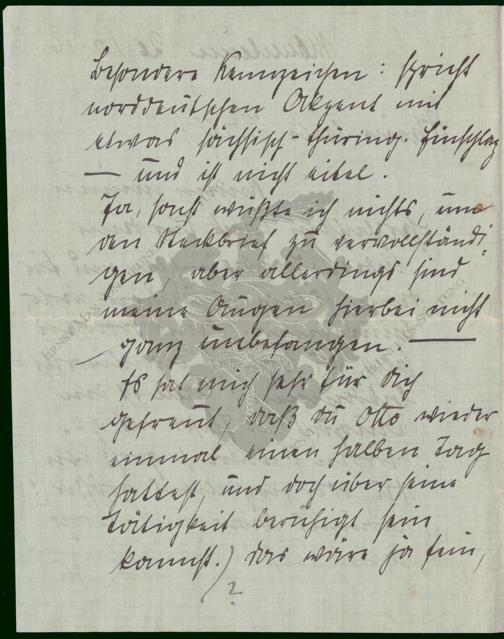 Besondere Kennzeichen: spricht
norddeutschen Akzent mit
etwas sächsisch-thüring. Einschlag
— und ist nicht eitel.
Ja, sonst wüßte ich nichts, um
den Steckbrief zu vervollständi-
gen aber allerdings sind
meine Augen hierbei nicht
ganz unbefangen. —
Es hat mich sehr für Dich
gefreut, daß du Otto wieder
einmal einen halben Tag
hattest, und doch über seine
Tätigkeit beruhigt sein
kannst.) das wäre ja fein,
?